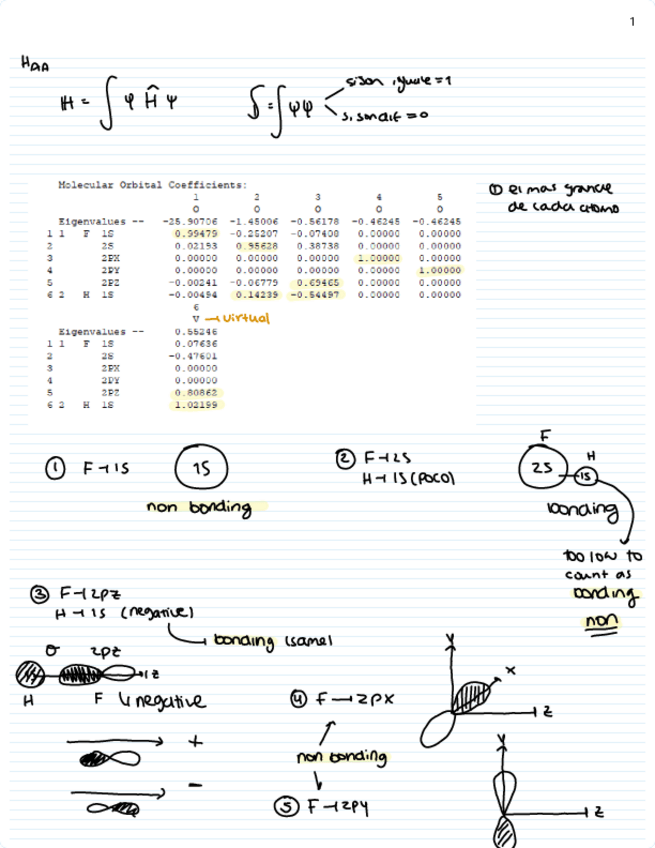 1
HAA
H = ∫ φ Ĥ φ
δ = ∫ φφ
si son iguale = 1
si son dif = 0
Molecular Orbital Coefficients:
1 2 3 4 5
O O O O O
Eigenvalues -- -25.90706 -1.45006 -0.56178 -0.46245 -0.46245
1 1 F 1S 0.99479 -0.25207 -0.07400 0.00000 0.00000
2 2S 0.02193 0.95628 0.38738 0.00000 0.00000
3 2PX 0.00000 0.00000 0.00000 1.00000 0.00000
4 2PY 0.00000 0.00000 0.00000 0.00000 1.00000
5 2PZ -0.00241 -0.06779 0.69465 0.00000 0.00000
6 2 H 1S -0.00494 0.14239 -0.54497 0.00000 0.00000
6
V → virtual
Eigenvalues -- 0.55246
1 1 F 1S 0.07636
2 2S -0.47601
3 2PX 0.00000
4 2PY 0.00000
5 2PZ 0.80862
6 2 H 1S 1.02199
① el mas grande
de cada atomo
① F → 1S
1S
non bonding
② F → 2S
H → 1S (poco)
F
H
2S
1S
bonding
too low to
count as
bonding
non
③ F → 2pz
H → 1S (negative)
bonding (same)
σ 2pz
z
H F ↳ negative
+
-
④ F → 2px
non bonding
⑤ F → 2py
y
x
z
y
z